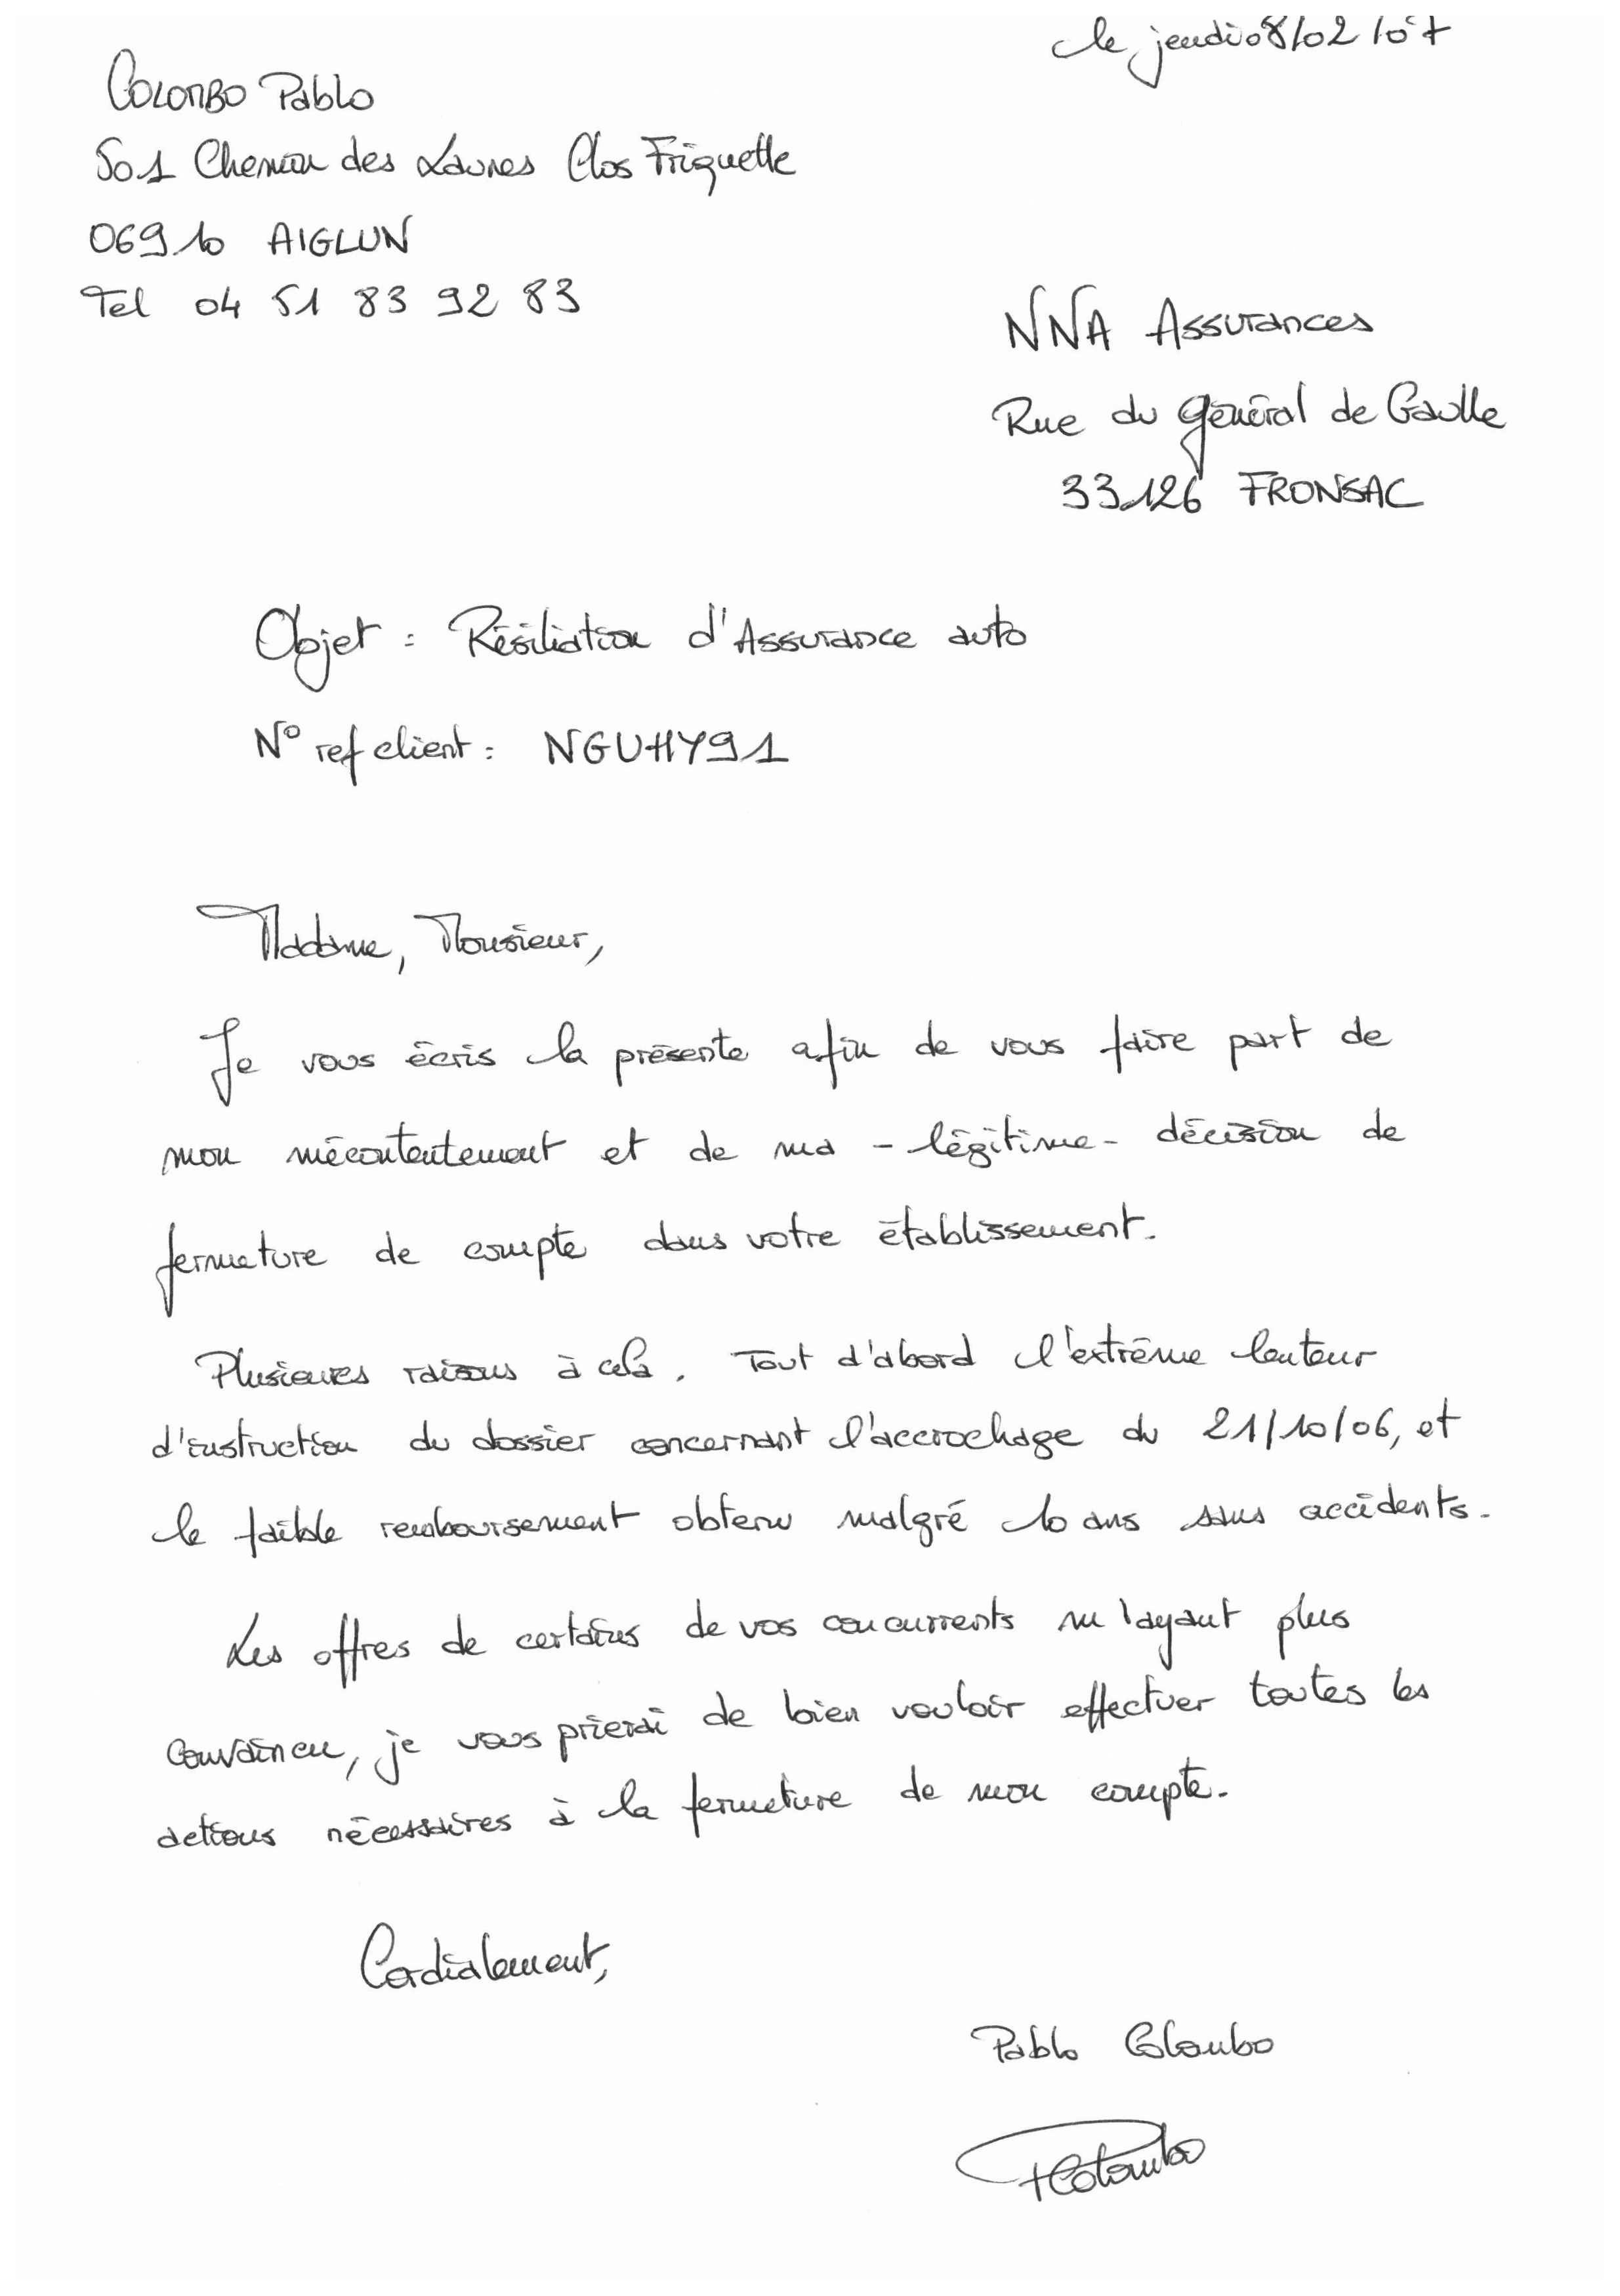 le jeudi 08/02/07
COLOMBO Pablo
501 Chemin des Laures Clos Friquette
06910 AIGLUN
Tel 04 51 83 92 83
NNA Assurances
Rue du général de Gaulle
33126 FRONSAC
Objet : Résiliation d'Assurance auto
N° ref client : NGUHY91
Madame, Monsieur,
Je vous écris la présente afin de vous faire part de
mon mécontentement et de ma - légitime - décision de
fermeture de compte dans votre établissement.
Plusieures raisons à cela. Tout d'abord l'extrême lenteur
d'instruction du dossier concernant l'accrochage du 21/10/06, et
le faible remboursement obtenu malgré 10 ans sans accidents.
Les offres de certains de vos concurrents m'ayant plus
convaincu, je vous prierai de bien vouloir effectuer toutes les
actions nécessaires à la fermeture de mon compte.
Cordialement,
Pablo Colombo
PColombo